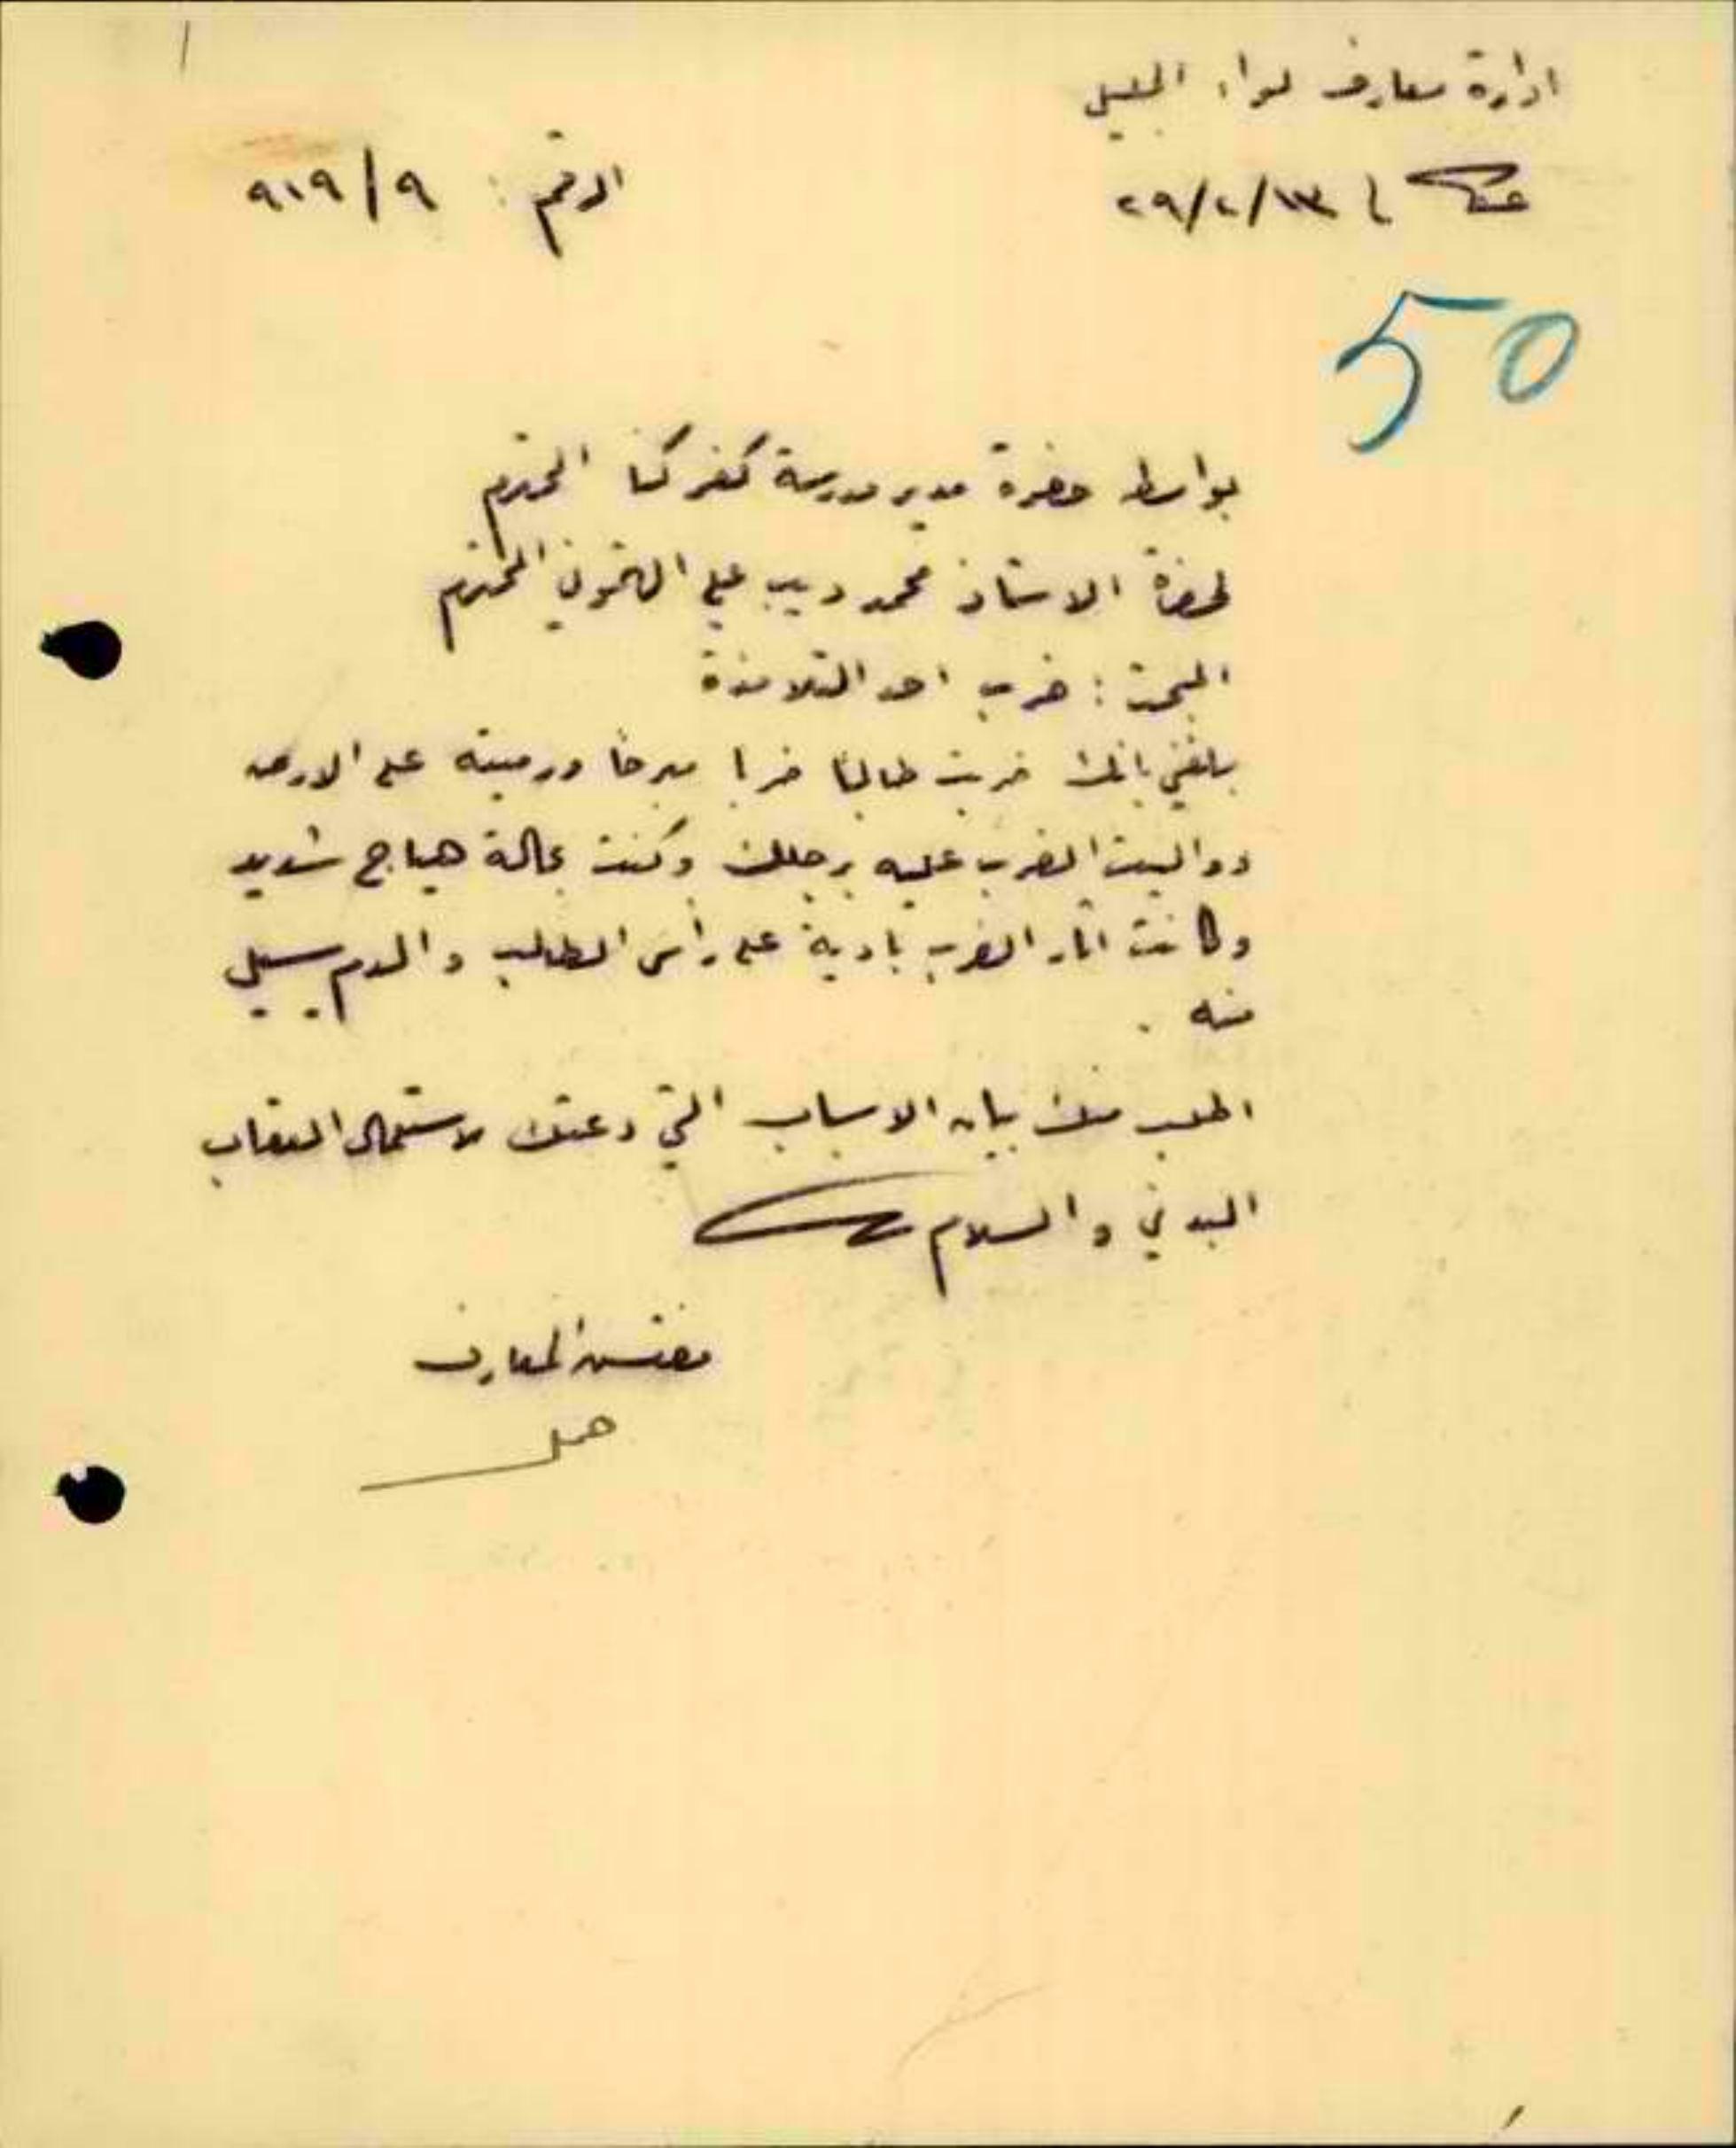 ادارة معارف لواء الجليل
عكا في ٢٩/٢/١٣
الرقم : ٩١٩/٩
50
بواسطة حضرة مدير مدرسة كفركنا المحترم
لحضرة الاستاذ محمد ديب علي المحترم
البحث : ضرب احد التلامذة
بلغني بانك ضربت طالبا ضربا مبرحا ورميته على الارض
وواليت الضرب عليه برجلك وكنت بحالة هياج شديد
وكانت اثار الضرب بادية على رأس الطالب والدم يسيل
منه .
اطلب منك بيان الاسباب التي دعتك لاستعمال العقاب
البدني والسلام
مفتش المعارف